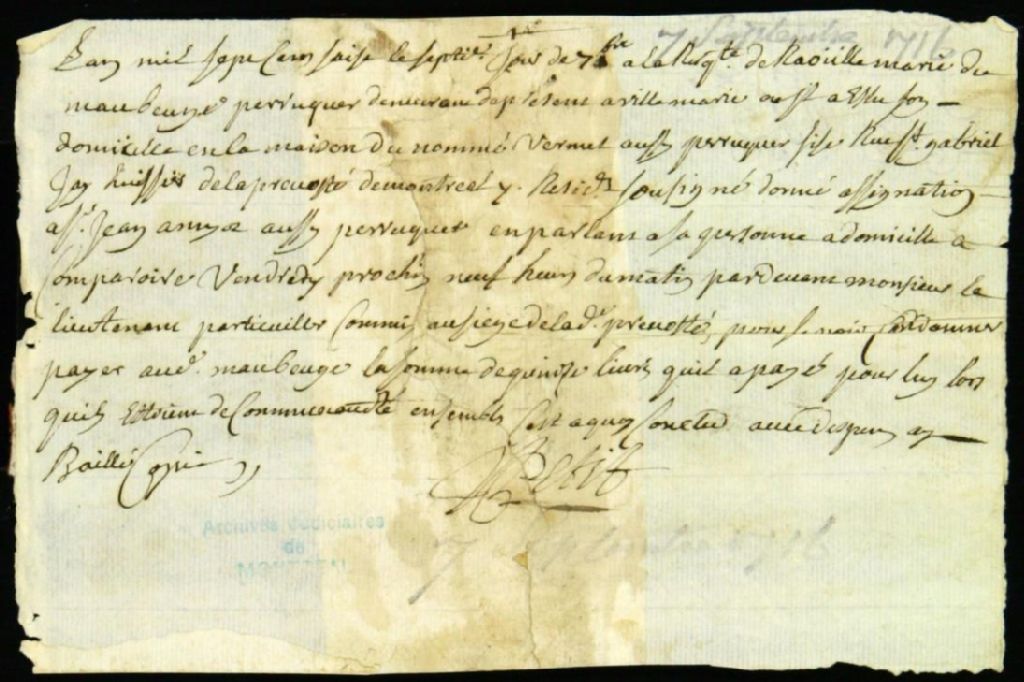 7 Septembre 1716
Lan mil sept Cens saise le septie. Jour de 7bre a la Reqte. de Raoülle marie du
maubeuge perruquer demeurant de present a ville marie ou Jl a Eslu son
domicille en la maison du nommé Vernet aussy perruquer size Rue St. gabriel
Jay huissier de la prevosté de montreal y Residt. sousigné donné assignation
a Jean amyot aussy perruquer en parlant a sa personne a domicille a
Comparoire Vendredy prochin neuf heure du matin pardevant monsieur le
lieutenant particuiller Commis au siege de lad. prevosté, pour se voir Condamner
payer aud. maubeuge la somme de quinse livre quil a payé pour luy lors
quils Estoient de Communauté ensemble Cest a quoy Conclud avec despens ay
Baillé Copie
Petit
Archives Judiciaires
de
Montréal
7 septembre 1716